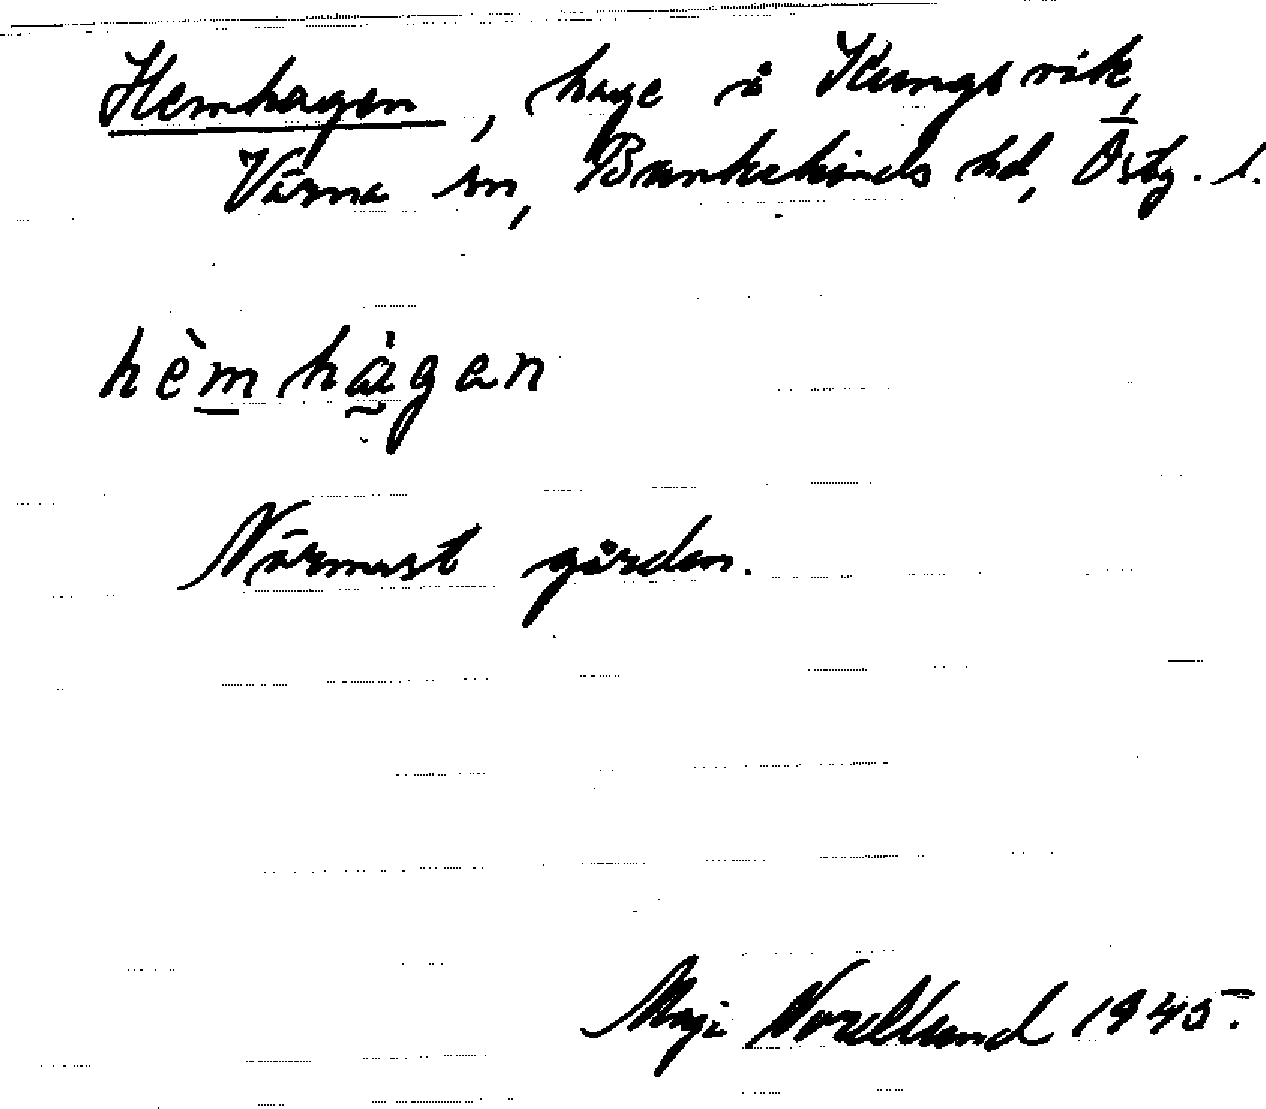 Hemhagen, hage å Kungsvik,
Värna sn, Bankekinds hd, Östg. l.
hèmhàgen
Närmast gården.
Maji Nordlund 1945.